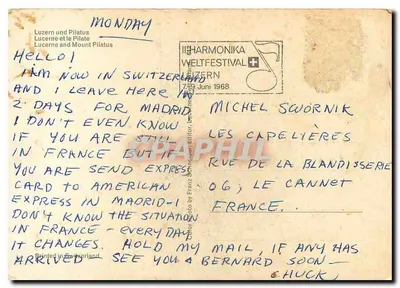 MONDAY
Luzern und Pilatus
Lucerne et le Pilate
Lucerne and Mount Pilatus
HARMONIKA
WELTFESTIVAL
LUZERN
7-9 Juni 1968
HELLO!
I AM NOW IN SWITZERLAND
AND I LEAVE HERE IN
2 DAYS FOR MADRID
I DON'T EVEN KNOW
IF YOU ARE STILL
IN FRANCE BUT IF
YOU ARE SEND EXPRESS
CARD TO AMERICAN
EXPRESS IN MADRID-I
DON'T KNOW THE SITUATION
IN FRANCE - EVERYDAY
IT CHANGES. HOLD MY MAIL, IF ANY HAS
ARRIVED. SEE YOU & BERNARD SOON -
CHUCK,
MICHEL SWORNIK
LES CAPELIÈRES
RUE DE LA BLANDISSERIE
06, LE CANNET
FRANCE.
Printed in Switzerland